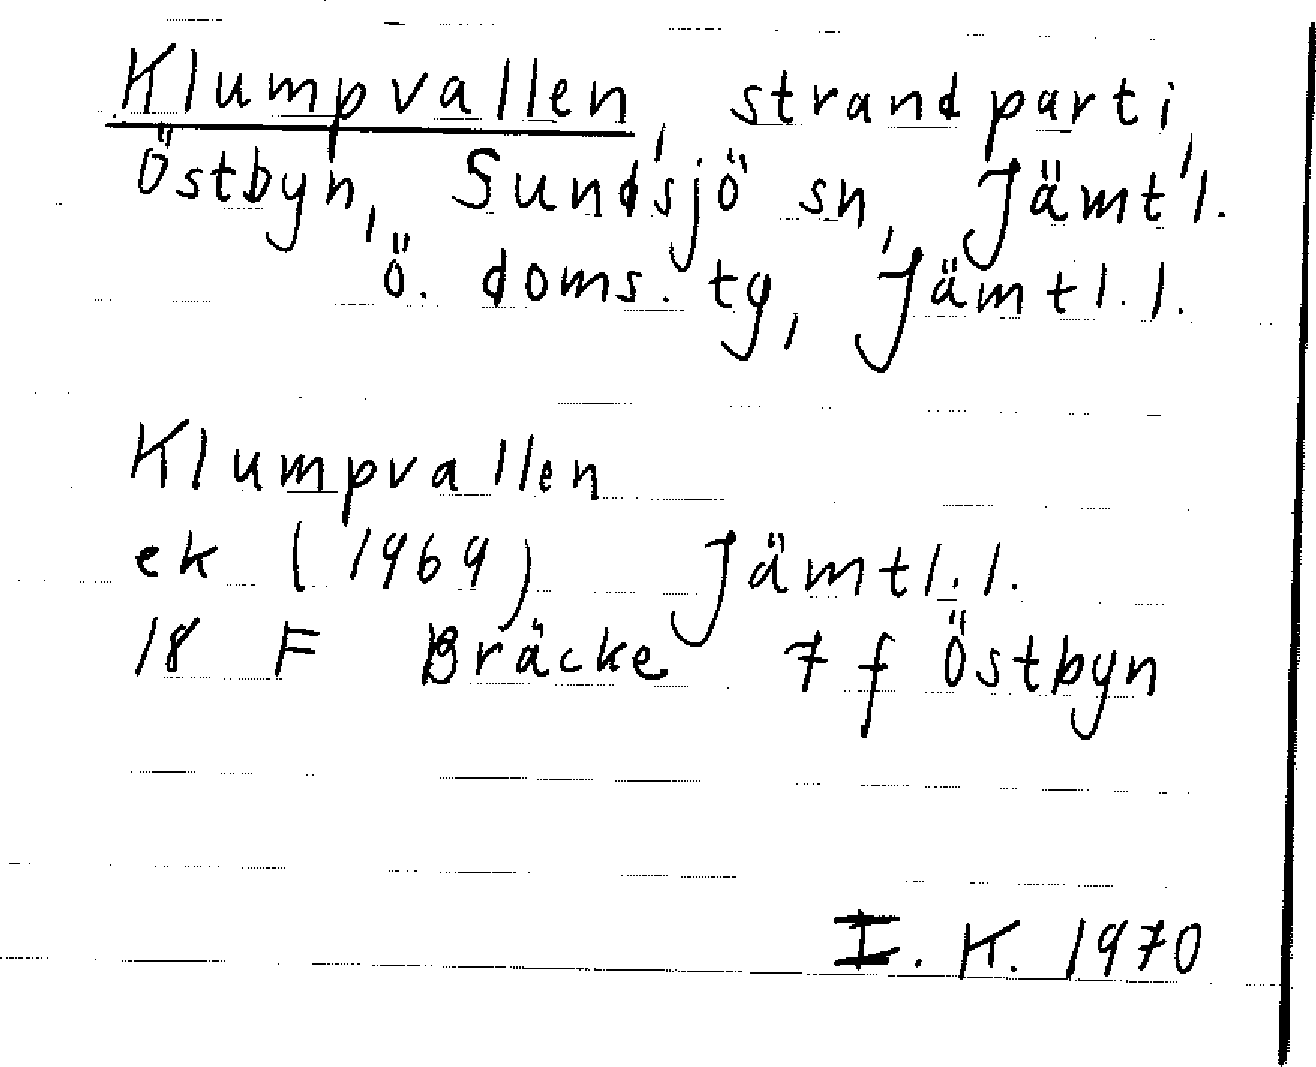 Klumpvallen, strandparti,
Östbyn, Sundsjö sn, Jämtl.
ö. doms. tg, Jämtl. l.
Klumpvallen
ek (1969) Jämtl. l.
18 F Bräcke 7 f Östbyn
I. K. 1970